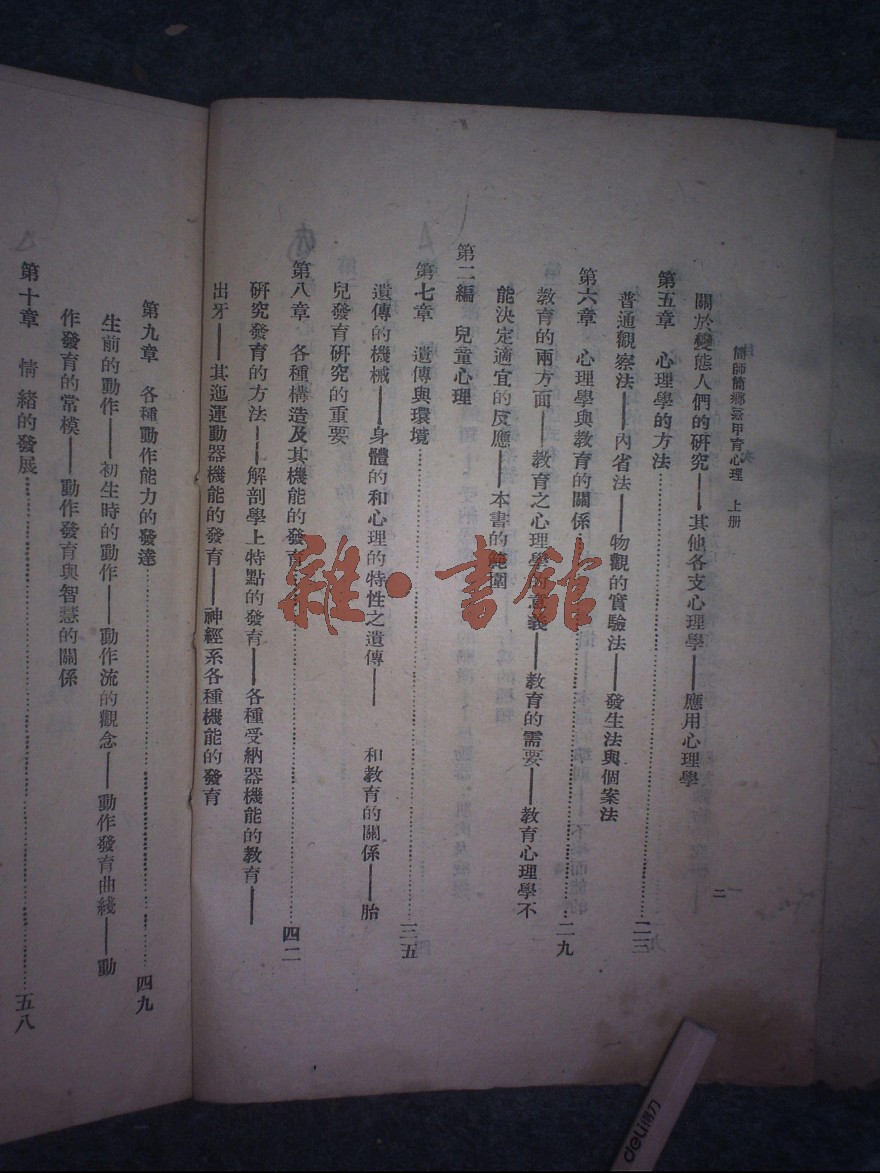 簡師簡鄉師甲育心理 上册
二
關於變態人們的研究——其他各支心理學——應用心理學
第五章 心理學的方法……二三
普通觀察法——內省法——物觀的實驗法——發生法與個案法
第六章 心理學與教育的關係……二九
教育的兩方面——教育之心理學的意義——教育的需要——教育心理學不
能決定適宜的反應——本書的範圍
第二編 兒童心理
第七章 遺傳與環境……三五
遺傳的機械——身體的和心理的特性之遺傳—— 和教育的關係——胎
兒發育研究的重要
第八章 各種構造及其機能的發育……四二
研究發育的方法——解剖學上特點的發育——各種受納器機能的教育——
出牙——其迤運動器機能的發育——神經系各種機能的發育
第九章 各種動作能力的發達……四九
生前的動作——初生時的動作——動作流的觀念——動作發育曲綫——動
作發育的常模——動作發育與智慧的關係
第十章 情緒的發展……五八
雜·書館
deli得力